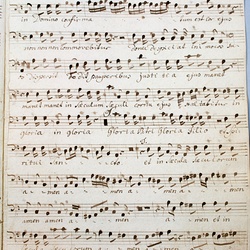 in Domino confirma tum est cor ejus
non commovebitur donec despiciat ini micos su
os Dispersit Dedit pauperibus justitia ejus manet
manet manet in saeculum saeculi cornu ejus exaltabitur in
gloria in gloria Gloria Patri gloria Filio et Spi
ritui San cto et in saecula saeculorum
a men a men a men a
men amen a men a men et in
saeculorum a men a men